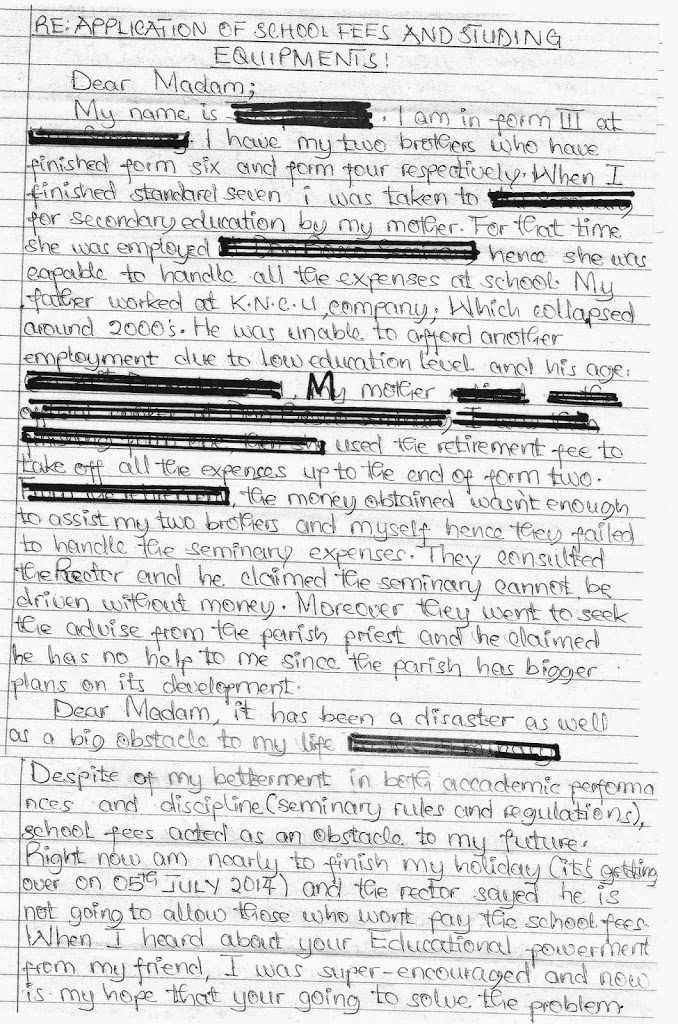 RE: APPLICATION OF SCHOOL FEES AND STUDING
EQUIPMENTS!
Dear Madam;
My name is . I am in form III at
. I have my two brothers who have
finished form six and form four respectively. When I
finished standard seven i was taken to
for secondary education by my mother. For that time
she was employed hence she was
capable to handle all the expenses at school. My
father worked at K.N.C.U, company. Which collapsed
around 2000's. He was unable to afford another
employment due to low education level and his age.
, My mother
used the retirement fee to
take off all the expenses up to the end of form two.
, the money obtained wasn't enough
to assist my two brothers and myself hence they failed
to handle the seminary expenses. They consulted
the Rector and he claimed the seminary cannot be
driven without money. Moreover they went to seek
the advise from the parish priest and he claimed
he has no help to me since the parish has bigger
plans on its development.
Dear Madam, it has been a disaster as well
as a big obstacle to my life
Despite of my betterment in both accademic performa
nces and discipline (seminary rules and regulations),
school fees acted as an obstacle to my future.
Right now am nearly to finish my holiday (it's getting
over on 05th JULY 2014) and the rector sayed he is
not going to allow those who wont pay the school fees.
When I heard about your Educational powerment
from my friend, I was super-encouraged and now
is my hope that your going to solve the problem.